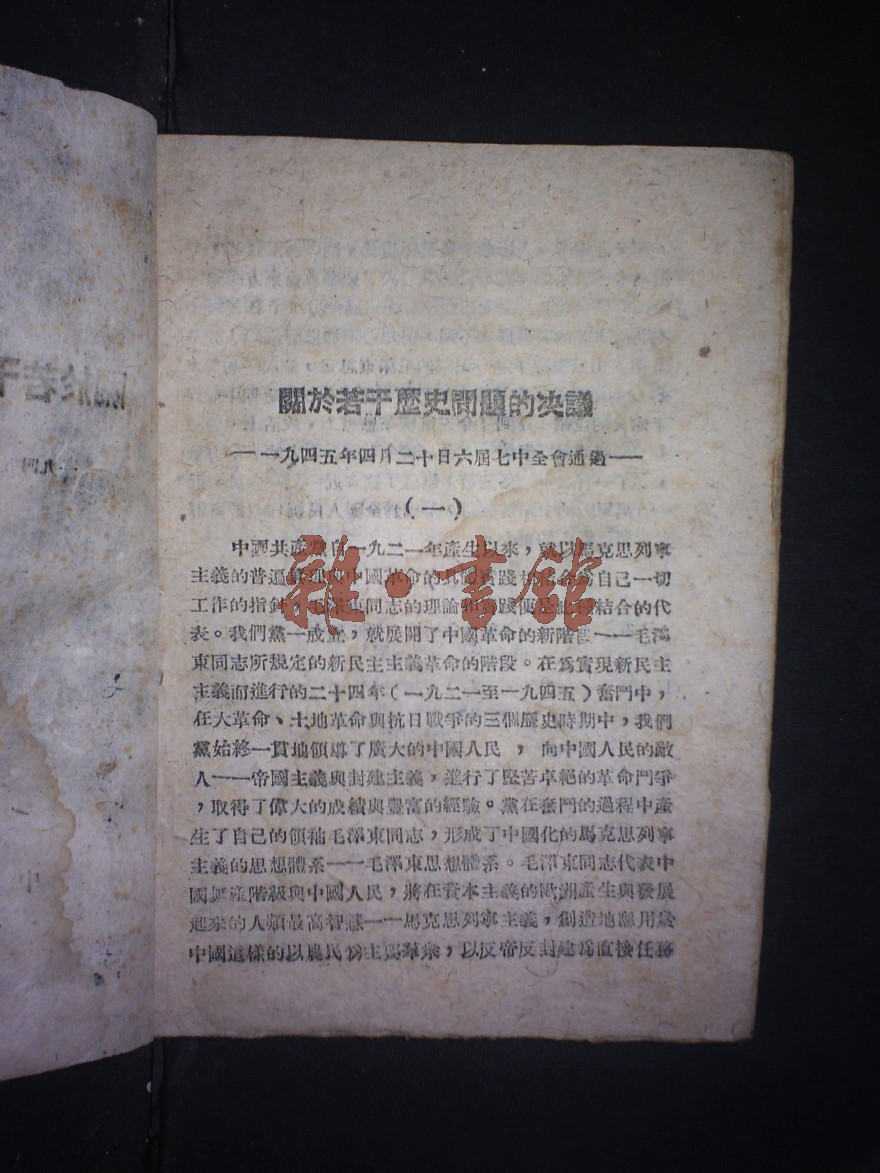 關於若干歷史問題的决議
——一九四五年四月二十日六屆七中全會通過——
（一）
中國共產黨自一九二一年產生以來，就以馬克思列寧
主義的普遍真理與中國革命的具體實踐相結合爲自己一切
工作的指針，毛澤東同志的理論和實踐便是此種結合的代
表。我們黨一成立，就展開了中國革命的新階段——毛澤
東同志所規定的新民主主義革命的階段。在爲實現新民主
主義而進行的二十四年（一九二一至一九四五）奮鬥中，
在大革命、土地革命與抗日戰爭的三個歷史時期中，我們
黨始終一貫地領導了廣大的中國人民，向中國人民的敵
人——帝國主義與封建主義，進行了堅苦卓絕的革命鬥爭
，取得了偉大的成績與豐富的經驗。黨在奮鬥的過程中產
生了自己的領袖毛澤東同志，形成了中國化的馬克思列寧
主義的思想體系——毛澤東思想體系。毛澤東同志代表中
國無產階級與中國人民，將在資本主義的歐洲產生與發展
起來的人類最高智慧——馬克思列寧主義，創造地應用於
中國這樣的以農民爲主要羣衆，以反帝反封建爲直接任務
雜·書館
關於若干